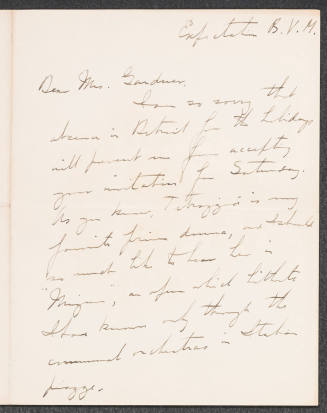 Expectatio B. V. M.
Dear Mrs. Gardner,
I am so sorry that
absence in Detroit for the holidays
will prevent me from accepting
your invitation for Saturday.
As you know, Tetrazzini is my
favorite prima donna, and I should
so much like to hear her in
"Mignon", an opera which hitherto
I have known only through the
communal orchestras in Italian
piazze.